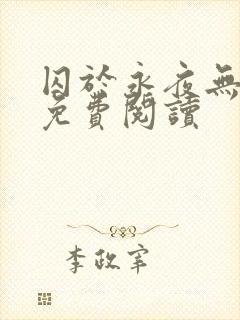 囚於永夜無
免費閱讀
李政宰